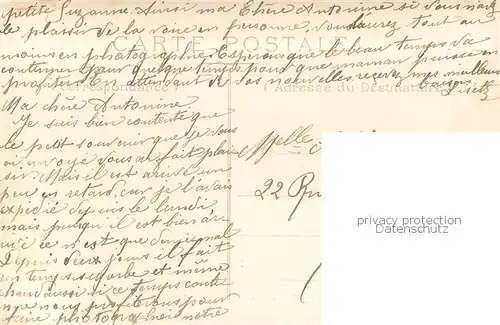 petite Suzanne. Ainsi ma Chère Antonine si vous n'avez
le plaisir de la voir en personne, vous l'aurez tout au
moins en photographie. Espérons que le beau temps va
continuer pour quelque temps pour que maman puisse en
profiter. En attendant de vos nouvelles recevez mes meilleurs
CARTE POSTALE
Correspondance
Adresse du Destinataire
Ma chère Antonine.
Je suis bien contente que
le petit souvenir que je vous
ai envoyé vous ait fait plai-
sir. Mais il est arrivé un
peu en retard, car je l'avais
expédié depuis le lundi
mais puisqu'il est bien ar-
rivé ce n'est que demi-mal
Depuis deux jours il fait
un temps superbe et même
chaud aussi si ce temps conti-
nue nous profiterons pour
faire photographier notre
Melle
22 Ru
privacy protection
Datenschutz